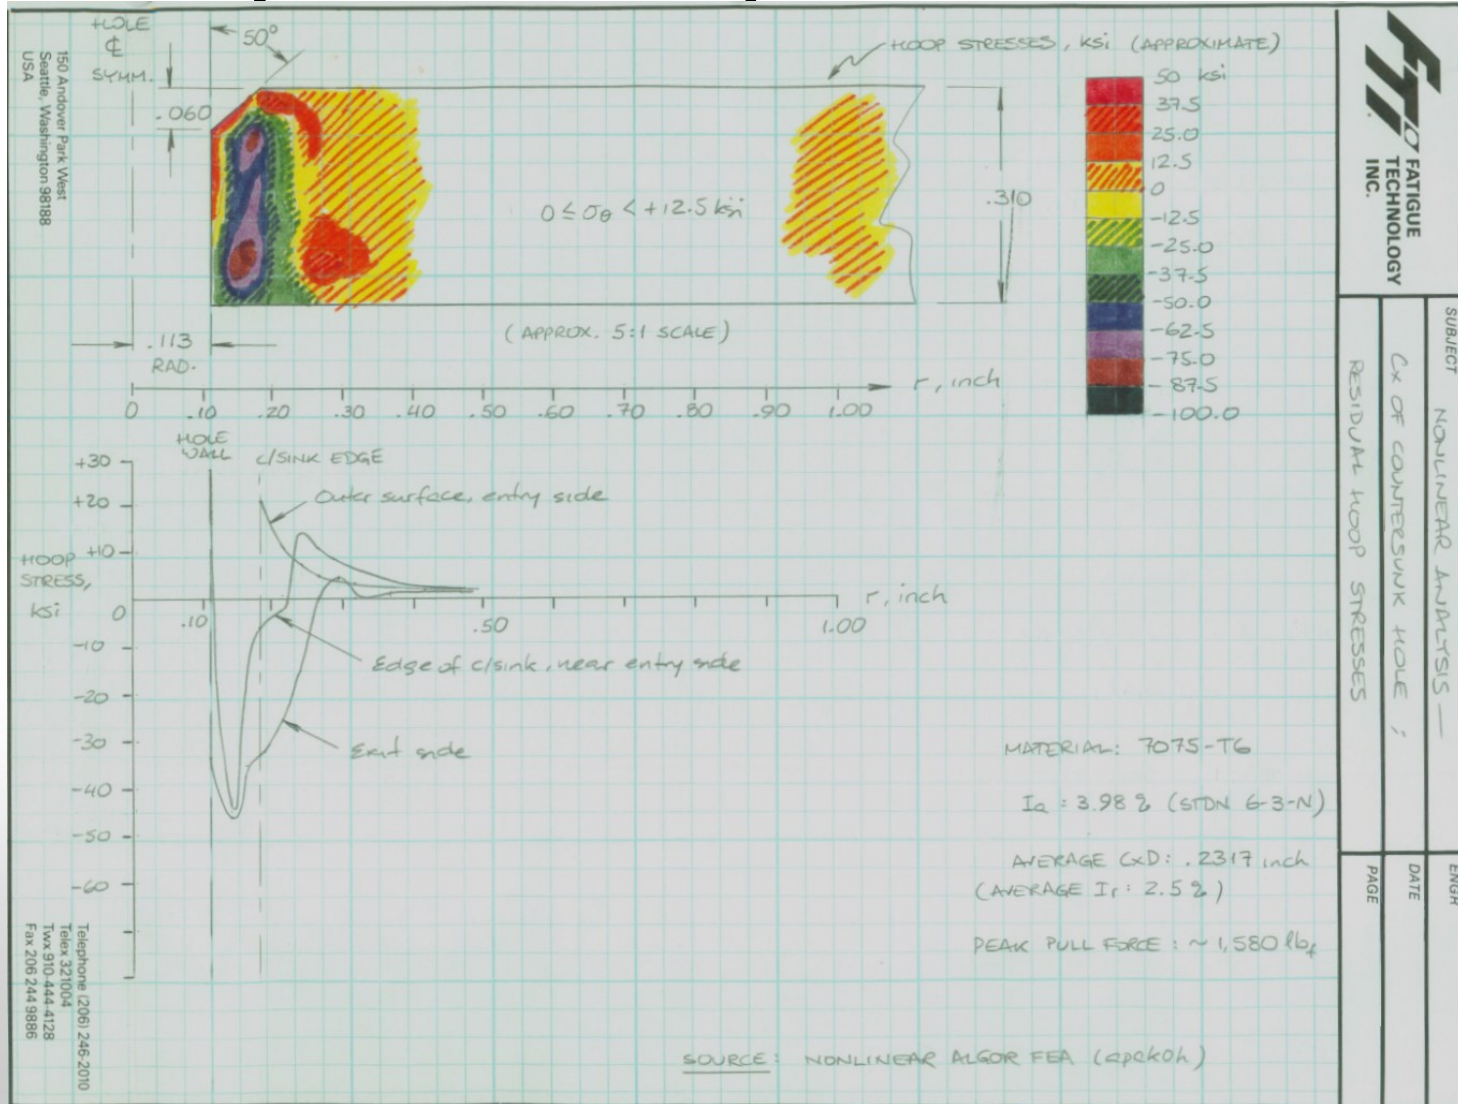 HOLE
℄
SYMM.
50°
.060
HOOP STRESSES, KSi (APPROXIMATE)
50 ksi
37.5
25.0
12.5
0
-12.5
-25.0
-37.5
-50.0
-62.5
-75.0
-87.5
-100.0
0 ≤ σθ < +12.5 ksi
.310
(APPROX. 5:1 SCALE)
.113
RAD.
r, inch
0 .10 .20 .30 .40 .50 .60 .70 .80 .90 1.00
HOLE
WALL
C/SINK EDGE
+30
+20
+10
0
-10
-20
-30
-40
-50
-60
HOOP
STRESS,
ksi
Outer surface, entry side
.10 .50 1.00
r, inch
Edge of c/sink, near entry side
Exit side
MATERIAL: 7075-T6
Ia : 3.98 % (STDN 6-3-N)
AVERAGE CxD: .2317 inch
(AVERAGE Ir: 2.5 %)
PEAK PULL FORCE : ~ 1,580 lbf
SOURCE: NONLINEAR ALGOR FEA (apckoh)
150 Andover Park West
Seattle, Washington 98188
USA
Telephone (206) 246-2010
Telex 321004
Twx 910-444-4128
Fax 206 244 9886
FTI
FATIGUE
TECHNOLOGY
INC.
SUBJECT
NONLINEAR ANALYSIS —
Cx OF COUNTERSUNK HOLE ;
RESIDUAL HOOP STRESSES
ENGR
DATE
PAGE